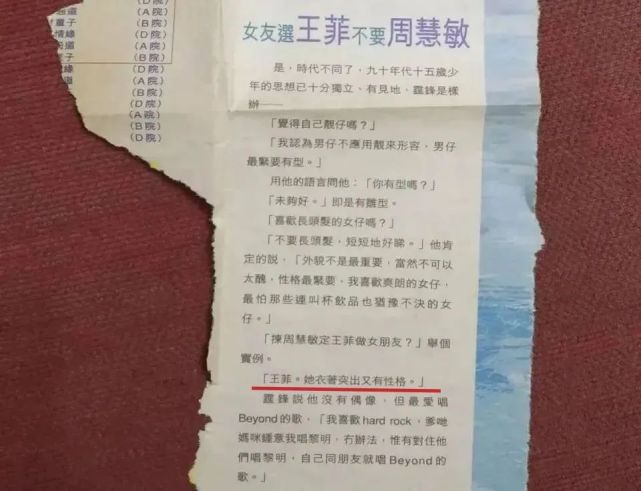 (D院)
(A院)
童子 (B院)
情緣 (D院)
(A院)
(B院)
(B院)
(D院)
(A院)
(B院)
(D院)
女友選王菲不要周慧敏
是,時代不同了,九十年代十五歲少
年的思想已十分獨立、有見地,霆鋒是樣
辦——
「覺得自己靚仔嗎?」
「我認為男仔不應用靚來形容,男仔
最緊要有型。」
用他的語言問他:「你有型嗎?」
「未夠好。」即是有雛型。
「喜歡長頭髮的女仔嗎?」
「不要長頭髮,短短地好睇。」他肯
定的說,「外貌不是最重要,當然不可以
太醜,性格最緊要,我喜歡爽朗的女仔,
最怕那些連叫杯飲品也猶豫不決的女
仔。」
「揀周慧敏定王菲做女朋友?」舉個
實例。
「王菲。她衣著突出又有性格。」
霆鋒説他沒有偶像,但最愛唱
Beyond的歌,「我喜歡hard rock,爹哋
媽咪鍾意我唱黎明,冇辦法,惟有對住他
們唱黎明,自己同朋友就唱Beyond的
歌。」